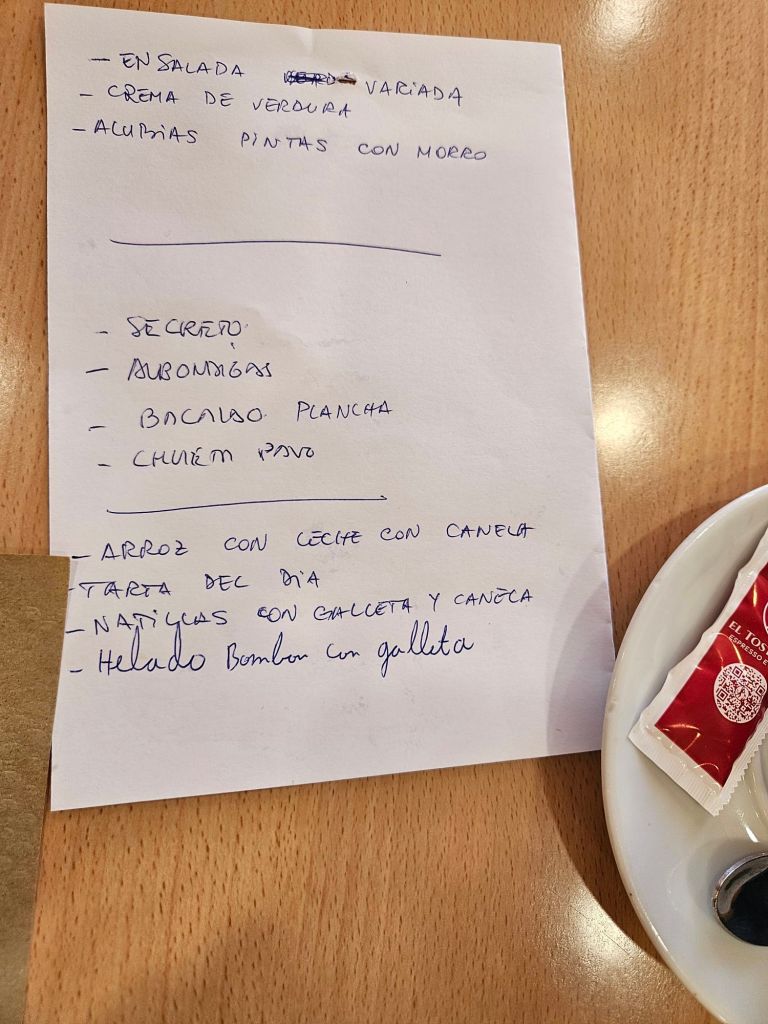 - ENSALADA VARIADA
- CREMA DE VERDURA
- ALUBIAS PINTAS CON MORRO
- SECRETO
- ALBONDIGAS
- BACALAO PLANCHA
- CHULETA PAVO
- ARROZ CON LECHE CON CANELA
- TARTA DEL DIA
- NATILLAS CON GALLETA Y CANELA
- Helado Bombon con galleta
EL TOS
ESPRESSO E